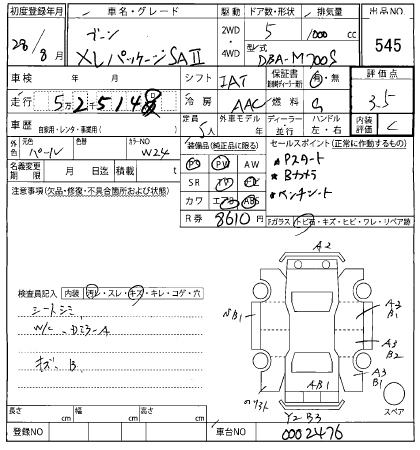 初度登録年月 車名・グレード 駆動 ドア数・形状 排気量 出品NO
28/8月 ブーン XLパッケージSAII 2WD 4WD 5 1000 cc 545
型式 DBA-M700S
車検 年 月 シフト IAT 保証書 有・無 評価点
走行 5万2千514 冷房 AAC 燃料 G 3.5
車歴 自家用・レンタ・事業用( ) 定員 5人 外車モデル 年 ディーラー 並行 ハンドル 左・右 内装評価 C
外色 元色 パール 色替 カラーNO W24 装備品(純正品に限る) セールスポイント(正常に作動するもの)
名義変更期限 月 日迄 積載 t PS PW AW * Pスタート
注意事項(欠品・修復・不具合箇所および状態) SR TV * Bカメラ
カワ エアB ABS * ベンチシート
R券 8610円 Fガラス トビ石・キズ・ヒビ・ワレ・リペア跡
A2
検査員記入 内装 汚レ・スレ・キズ・キレ・コゲ・穴
シートシミ
W/C
キズ B
B1
A3
B1
A3
B2
A3
B1
AB1
Y2 B3
スペア
長さ cm 幅 cm 高さ cm
登録NO 車台NO 0002476